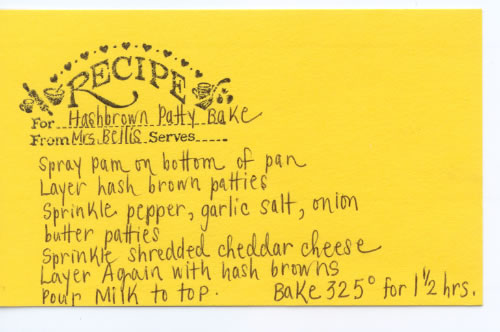 RECIPE
For Hashbrown Patty Bake
From Mrs. Bellis Serves
Spray pam on bottom of pan
Layer hash brown patties
Sprinkle pepper, garlic salt, onion
butter patties
Sprinkle shredded cheddar cheese
Layer Again with hash browns
Pour Milk to top. Bake 325° for 1 1/2 hrs.